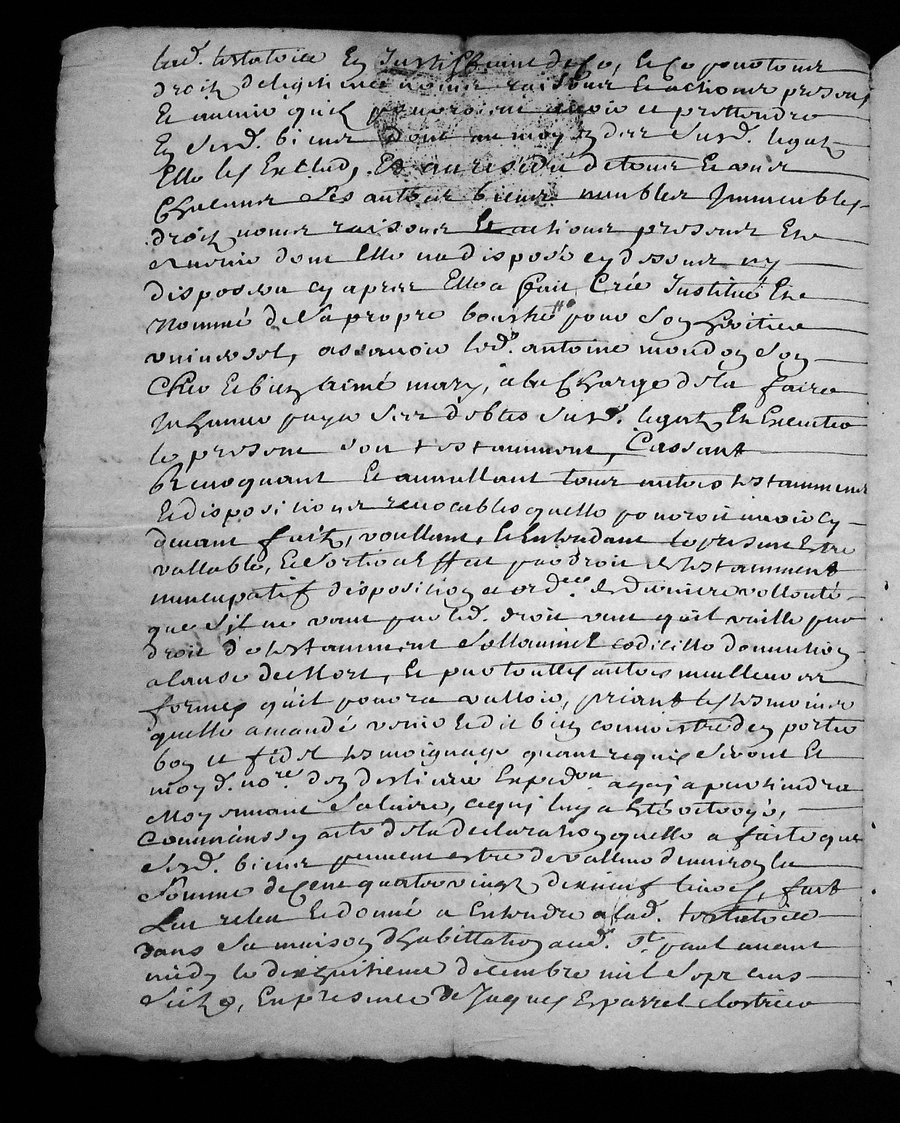 lad. testatrice En Justiffiant de ce, et ce pour tous
droitz de legitime noms raisons et actions presens
Et avenir quils pourroient avoir et prettendre
En sesd. biens dont au moyen des susd. legatz
Elle les Exclud, Et au residu de tous et uns
Chacuns ses autres biens meubles Jmmeubles
droitz noms raisons Et actions presens Et
avenir dont Elle na disposé cy dessus ny
disposera cy apres Elle a fait, Créé Justitué Et
Nommé de sa propre bouche pour son heritier
universel, assavoir led. antoine mondon son
Cher et bien aimé mary, a la Charge de la faire
Jnhumer payer ses debtes susd. legatz Et Executer
le present son testamment, Cassant
Revoquant Et annullant tous autres testammens
Et dispositions revocables quelle pouroit avoir cy
devant faitz, voullant, et Entendant le present Estre
vallable, et sortir a Effect par droit de testamment
nuncupatif disposition et ord.ce de derniere vollonté
que s'il ne vaut par led. droit veut quil vaille par
droit de testamment sollamnel codicille donnation
a cause de Mort, Et par touttes autres meilleures
formes quil poura valloir, priant les tesmoins
quelle a mandé venir et dit bien connoistre den porter
bon et fidel tesmoignage quant requis seront Et
moy d. no.re den des livrer Expedon a qui apartiendra
Moyennant salaire, ce qui luy a Esté octroyé,
Comme aussy acte de la declaration quelle a faite que
sesd. biens peuvent estre de valleur denviron la
somme de Cent quatre vingt dix neuf livres, fait
leu releu et donné a Entendre a lad. testatrice
dans sa maison dhabittation aud. St. paul avant
midy le dix huitieme decembre mil sept cens
Enpresence de Jaques Esparrel